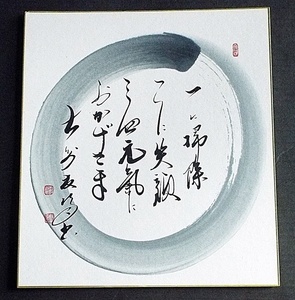 一に掃除
二に笑顔
三四元氣に
おかげさま